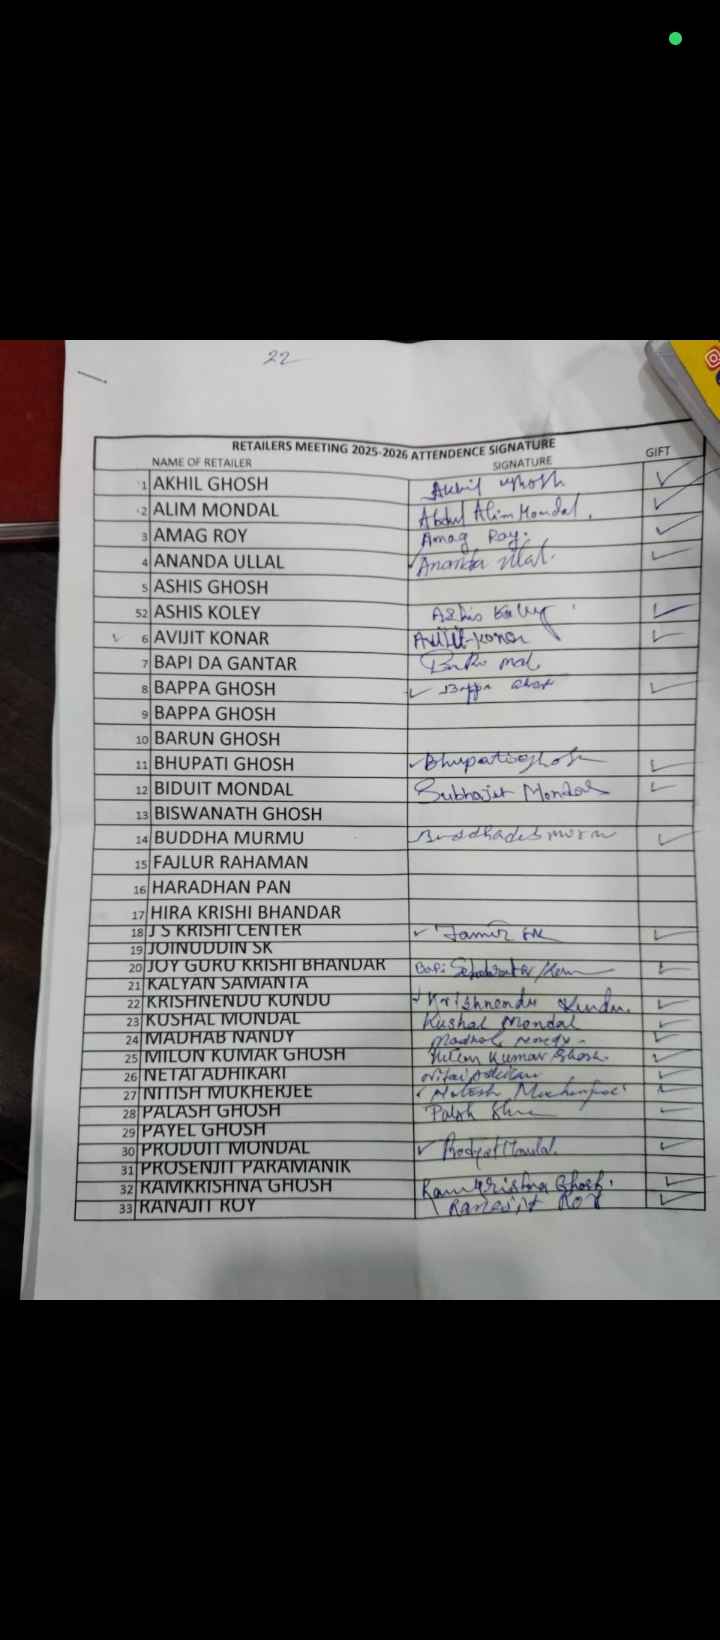 22
RETAILERS MEETING 2025-2026 ATTENDENCE SIGNATURE
NAME OF RETAILER SIGNATURE GIFT
1 AKHIL GHOSH Akhil Ghosh ✓
2 ALIM MONDAL Abdul Alim Mondal. ✓
3 AMAG ROY Amag Roy. ✓
4 ANANDA ULLAL Ananda Ullal. ✓
5 ASHIS GHOSH
52 ASHIS KOLEY Ashis Koley ✓
✓ 6 AVIJIT KONAR Avijit Konar ✓
7 BAPI DA GANTAR
8 BAPPA GHOSH ✓ Bappa Ghosh ✓
9 BAPPA GHOSH
10 BARUN GHOSH
11 BHUPATI GHOSH ✓ Bhupati Ghosh ✓
12 BIDUIT MONDAL Subhajit Mondal ✓
13 BISWANATH GHOSH
14 BUDDHA MURMU Buddhadeb murmu ✓
15 FAJLUR RAHAMAN
16 HARADHAN PAN
17 HIRA KRISHI BHANDAR
18 J S KRISHI CENTER ✓ Jamir SK ✓
19 JOINUDDIN SK
20 JOY GURU KRISHI BHANDAR Bapi ✓
21 KALYAN SAMANTA
22 KRISHNENDU KUNDU Krishnendu Kundu. ✓
23 KUSHAL MONDAL Kushal Mondal ✓
24 MADHAB NANDY Madhab Nandy ✓
25 MILON KUMAR GHOSH Milon Kumar Ghosh. ✓
26 NETAI ADHIKARI Nitai Adhikari ✓
27 NITISH MUKHERJEE Nitish Mukherjee ✓
28 PALASH GHOSH Palash Ghosh ✓
29 PAYEL GHOSH
30 PRODUIT MONDAL ✓ Prodyut Mondal. ✓
31 PROSENJIT PARAMANIK
32 RAMKRISHNA GHOSH Ramkrishna Ghosh. ✓
33 RANAJIT ROY Ranajit Roy ✓